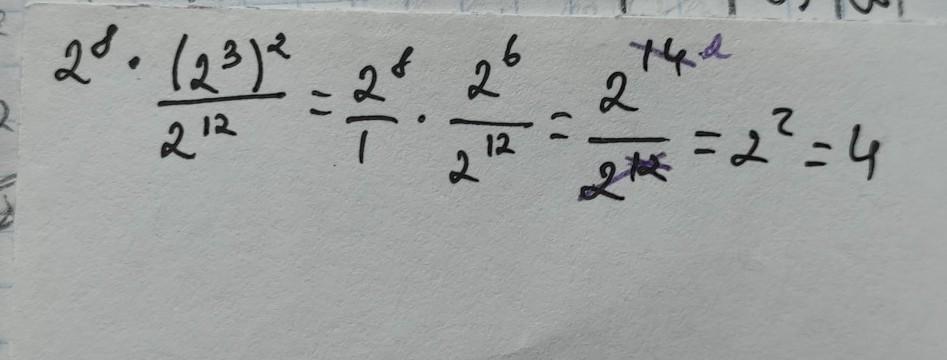 2⁸ · (2³)²/2¹² = 2⁸/1 · 2⁶/2¹² = 2¹⁴ ²/2¹² = 2² = 4